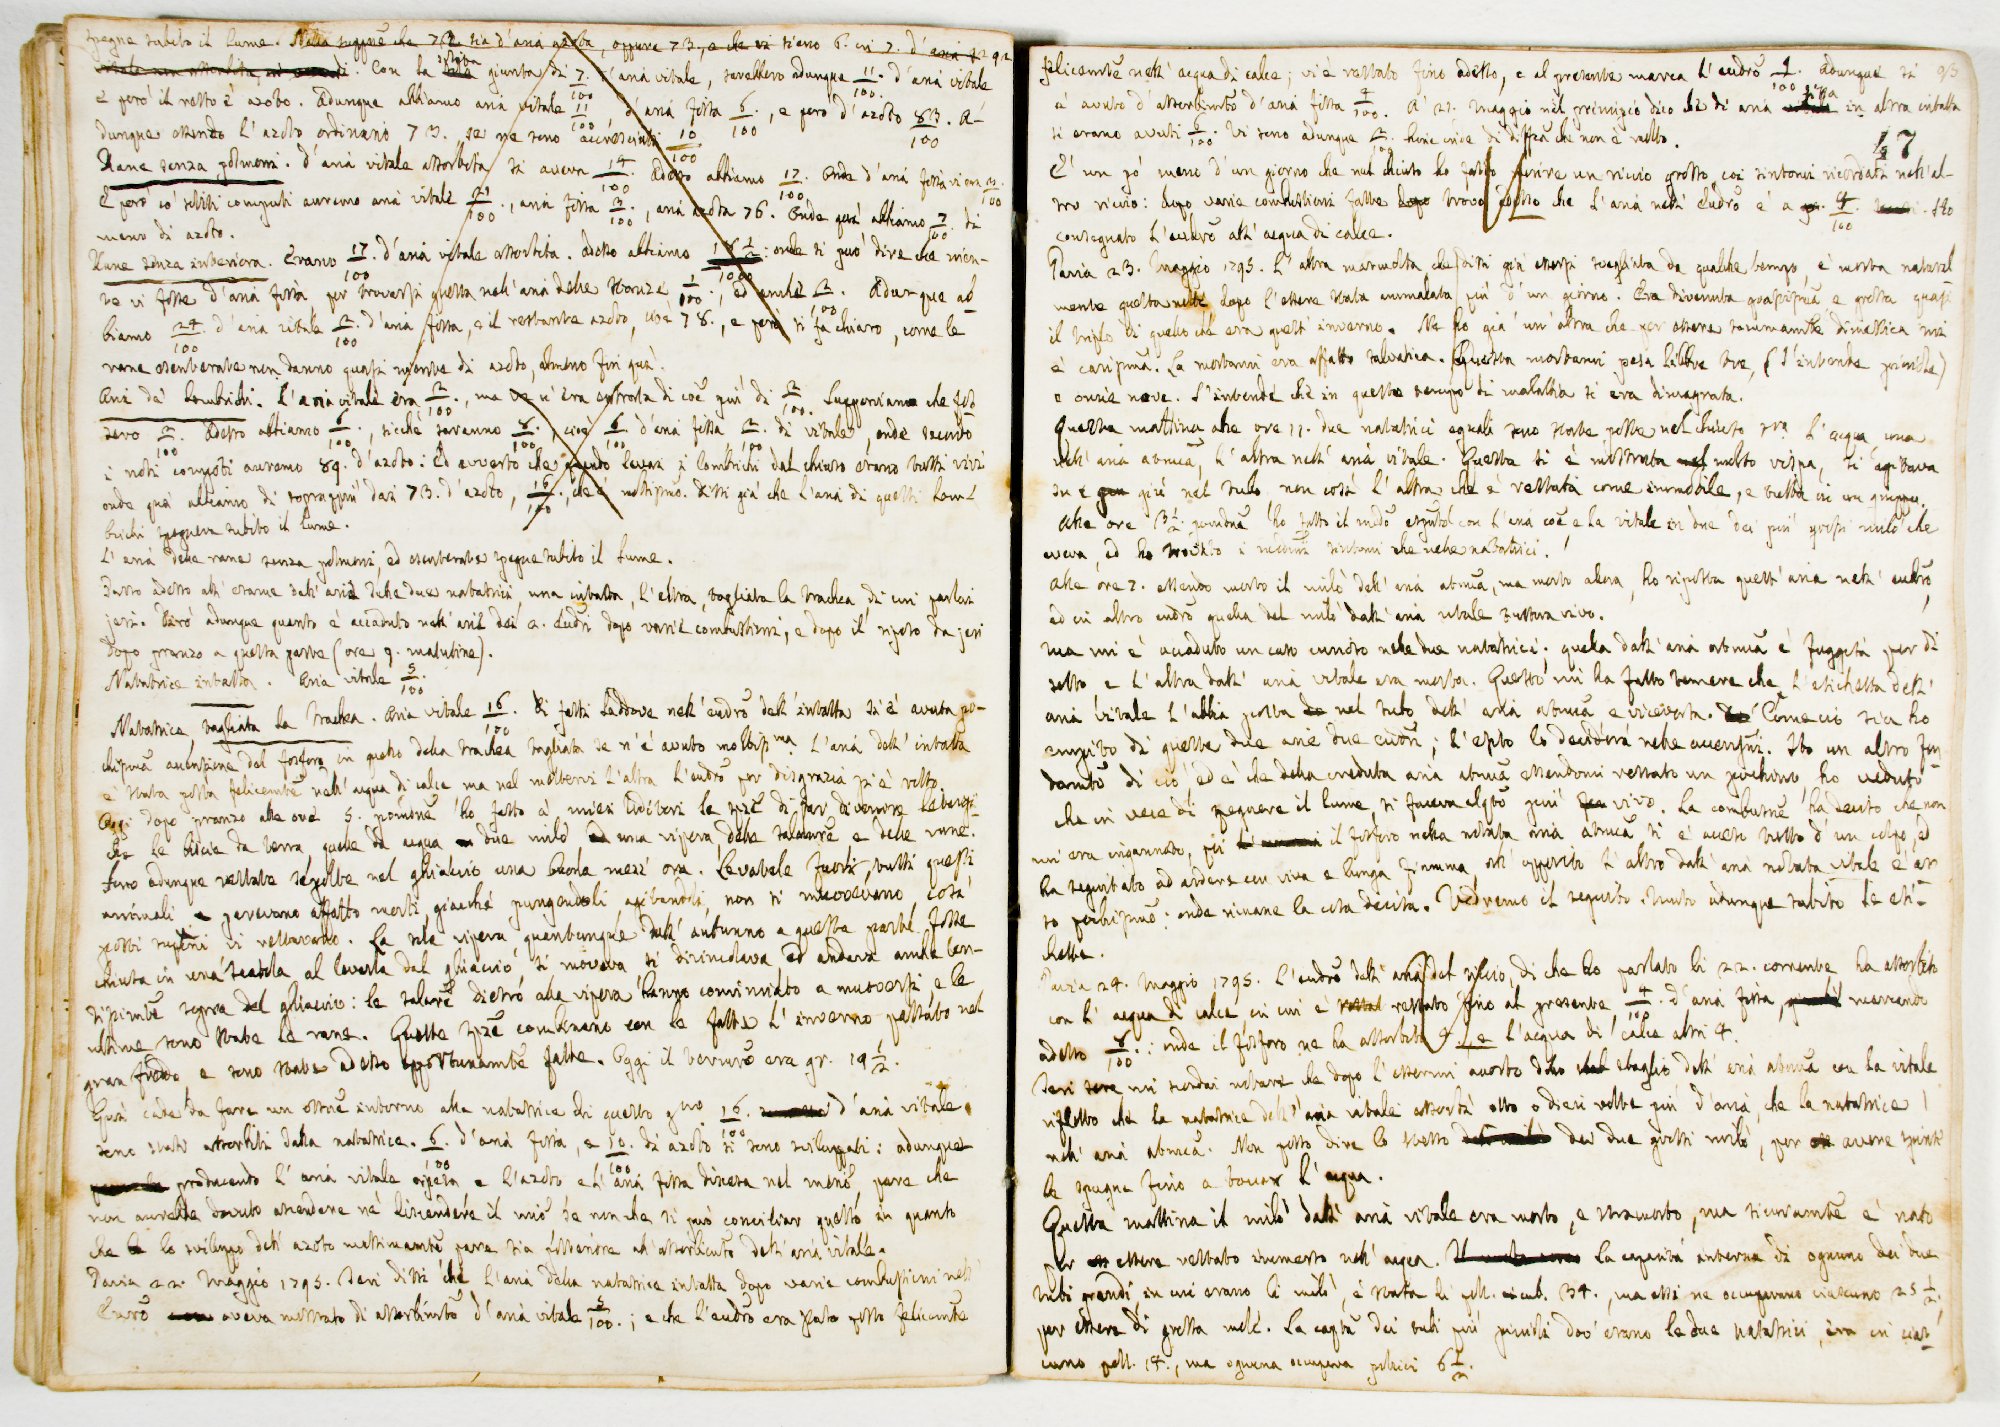 spegne subito il lume. d'aria oppure 73, e che vi sieno 6. in 7. d'aria
Con la giunta di 7/100 d'aria vitale, sarebbero adunque 11/100. d'aria vitale
e però il resto è azoto. Adunque abbiamo aria vitale 11/100, d'aria fissa 6/100., e però d'azoto 83/100. A-
dunque essendo l'azoto ordinario 73., se ne sono accresciuti 10/100
Rane senza polmoni. d'aria vitale assorbita si aveva 14/100. Adesso abbiamo 17/100. Onde d'aria fissa vi era 3/100.
E però co' soliti computi avremo aria vitale 21/100., aria fissa 3/100., aria azota 76. Onde quà abbiamo 7/100. di
meno di azoto.
Rane senza interiora. Erano 17/100. d'aria vitale assorbita. Adesso abbiamo : onde si può dire che nien-
te vi fosse d'aria fissa, per trovarsi questa nell'aria delle stanze 1/100., ed anche 2/100. Adunque ab
biamo 24/100 d'aria vitale 2/100. d'aria fissa, e il restante azoto, cioè 78., e però si fa chiaro, come le
rane sventrate non danno quasi niente di azoto, almeno fin quà.
Aria de' lombrichi. L'aria vitale era 2/100., ma n'era entrata di cõe più di 2/100. Supponiamo che fos
sero 2/100. Adesso abbiamo 6/100., sicchè saranno 8/100., cioè 6/100. d'aria fissa 2/100. di vitale, onde secondo
i noti computi avremo 89. d'azoto: ed avverto che quando levai i lombrichi dal chiuso erano tutti vivi
onde quà abbiamo di soprappiù dai 73. d'azoto, 16/100., che è moltissimo. Dissi già che l'aria di questi lom-
brichi spegneva subito il lume.
L'aria delle rane senza polmoni, ed sventrate spegne subito il lume.
Passo adesso all'esame dell'aria delle due natatrici una intatta, l'altra, tagliata la trachea, di cui parlai
jeri. Dirò adunque quanto è accaduto nell'aria dei 2. Eudri dopo varie combustioni, e dopo il riposo da jeri
dopo pranzo a questa parte (ore 9. matutine).
Natatrice intatta. Aria vitale 5/100.
Natatrice tagliata la trachea. Aria vitale 16/100. Di fatti laddove nell'eudrõ dell'intatta si è avuta po-
chissima accensione del fosforo in quello della trachea tagliata se n'è avuto moltissma. L'aria dell'intatta
è stata posta felicemte nell'acqua di calce ma nel mettervi l'altra l'eudrõ per disgrazia si è rotto.
Oggi dopo pranzo alle ore 5. ho fatto a' miei Uditori le spze di far divenire letargi-
che le biscie da terra, quelle da acqua due milò una vipera, delle salamre e delle rane.
Sono adunque restate sepolte nel ghiaccio una buona mezz'ora. Levatele fuori, tutti questi
animali parevano affatto morti giacchè pungendoli agitandoli, non si muovevano, così
posti supini vi restavano. La sola vipera quantunque dall'autunno a questa parte fosse
chiusa in una scatola al levarla dal ghiaccio, si moveva, si divincolava, ed andava anche len-
tissimte sopra del ghiaccio: le salamre dietro alla vipera hanno cominciato a muoversi, e le
ultime sono state le rane. Queste spze combinano con le fatte l'inverno passato nel
gran freddo e sono state adesso opportunamte fatte. Oggi il termmrõ era gr. 19 1/2.
Quì cade da fare un ossrnẽ intorno alla natatrice di questo gno. 16/100. d'aria vitale
sono stati assorbiti dalla natatrice. 6/100. d'aria fissa, e 10/100. di azoto si sono sviluppati: adunque
producendo l'aria vitale e l'azoto e l'aria fissa discesa nel meno, pare che
non avrebbe dovuto ascendere nè discendere il milò se non che si può conciliar questo in quanto
che lo sviluppo dell'azoto massimamte pare sia posteriore all'assorbimto dell'aria vitale.
Pavia 22. Maggio 1795. Jeri dissi che l'aria della natatrice intatta dopo varie combustioni nell'
Eudrõ aveva mostrato di assorbimto d'aria vitale 5/100.; e che l'eudrõ era stato posto felicemte
felicemte nell'acqua di calce; vi è restato fino adesso, e al presente marca l'eudrõ 9/100. Adunque si
è avuto d'assorbimto d'aria fissa 4/100. A' 21. Maggio nel principio dico che di aria fissa in altra intatta
si erano avuti 6/100. Vi sono adunque 2/100. di diffrza che non è molto.
17
È un pò meno d'un giorno che nel chiuso ho fatto perire un riccio grosso, coi sintomi ricordati nell'al-
tro riccio: dopo varie combustioni fatte trovo adesso che l'aria nell'Eudrõ è a 4/100. Ho
consegnato l'eudrõ all'acqua di calce.
Pavia 23. Maggio 1795. L'altra marmotta, che dissi già essersi svegliata da qualche tempo, è morta natural
mente questa notte dopo l'essere stata ammalata più d'un giorno. Era divenuta grassissma e grossa quasi
il triplo di quello che era quest'inverno. Ne ho già un'altra che per essere sommamte dimestica mi
è carissma. La mortami era affatto salvatica. Questa mortami pesa libbre tre, (s'intende piccole)
e oncie nove. S'intende che in questo tempo di malattia si era dimagrata.
Questa mattina alle ore 11. due natatrici eguali sono state poste nel chiuso sopra l'acqua una
nell'aria atmca, l'altra nell'aria vitale. Questa si è mostrata molto vispa, si agitava
su e giù nel tubo, non così l'altra che è restata come immobile, e tutta in un gruppo.
Alle ore 3 1/2. ho fatto il medo esptõ con l'aria cõe e la vitale in due dei più grossi milò che
aveva, ed ho trovato i medmi sintomi che nelle natatrici.
Alle ore 7. essendo morto il milò dell'aria atmca, ma morto allora, ho riposta quest'aria nell'eudrõ,
ed in altro eudrõ quella del milò dell'aria vitale tuttora vivo.
Ma mi è accaduto un caso curioso nelle due natatrici. quella dell'aria atmca è fuggita per di
sotto e l'altra dell'aria vitale era morta. Questo mi ha fatto temere che l'etichetta dell'
aria vitale l'abbia posta nel tubo dell'aria atmca e viceversa. Comecciò sia ho
empito di queste due arie due eudri; l'esito lo deciderà nelle accensni. Ho un altro fon
damtõ di ciò, ed è che della creduta aria atmca essendomi restato un pochino, ho veduto
che in vece di spegnere il lume si faceva alqto più vivo. La combustne ha deciso che non
m'era ingannato, poi il fosforo nella notata aria atmca si è acceso tutto d'un colpo, ed
ha seguitato ad ardere con viva e lunga fiamma, all'opposto l'altro dell'aria notata vitale è ar
so pochissmo: onde rimane la cosa decisa. Vedremo il seguito. Muto adunque subito le eti-
chette.
Pavia 24. Maggio 1795. L'eudrõ dell'aria del riccio, di che ho parlato li 22. corrente ha assorbito
con l'acqua di calce in cui è restato fino al presente, 4/100. d'aria fissa, marcando
adesso 8/100.: onde il fosforo ne ha assorbito 4. e l'acqua di calce altri 4.
Jeri mi scordai notare che dopo l'essermi accorto dello sbaglio dell'aria atmca con la vitale
rifletto che la natatrice dell'aria vitale assorbì otto o dieci volte più d'aria, che la natatrice
nell'aria atmca. Non posso dire lo stesso dei due grossi milò, per avere spinte
le spugne fino a toccar l'acqua.
Questa mattina il milò dell'aria vitale era morto, e stramorto, ma sicuramte è nato
per essere restato immerso nell'acqua. La capacità interna di ognuno dei due
tubi grandi in cui erano li milò, è stata di poll. cub. 34., ma essi ne occupavano ciascuno 25 1/2.
per essere di grossa mole. La captà dei tubi più piccoli dov'erano le due natatrici, era in cias-
cuno poll. 14., ma ognuna occupava pollici 6 1/2.